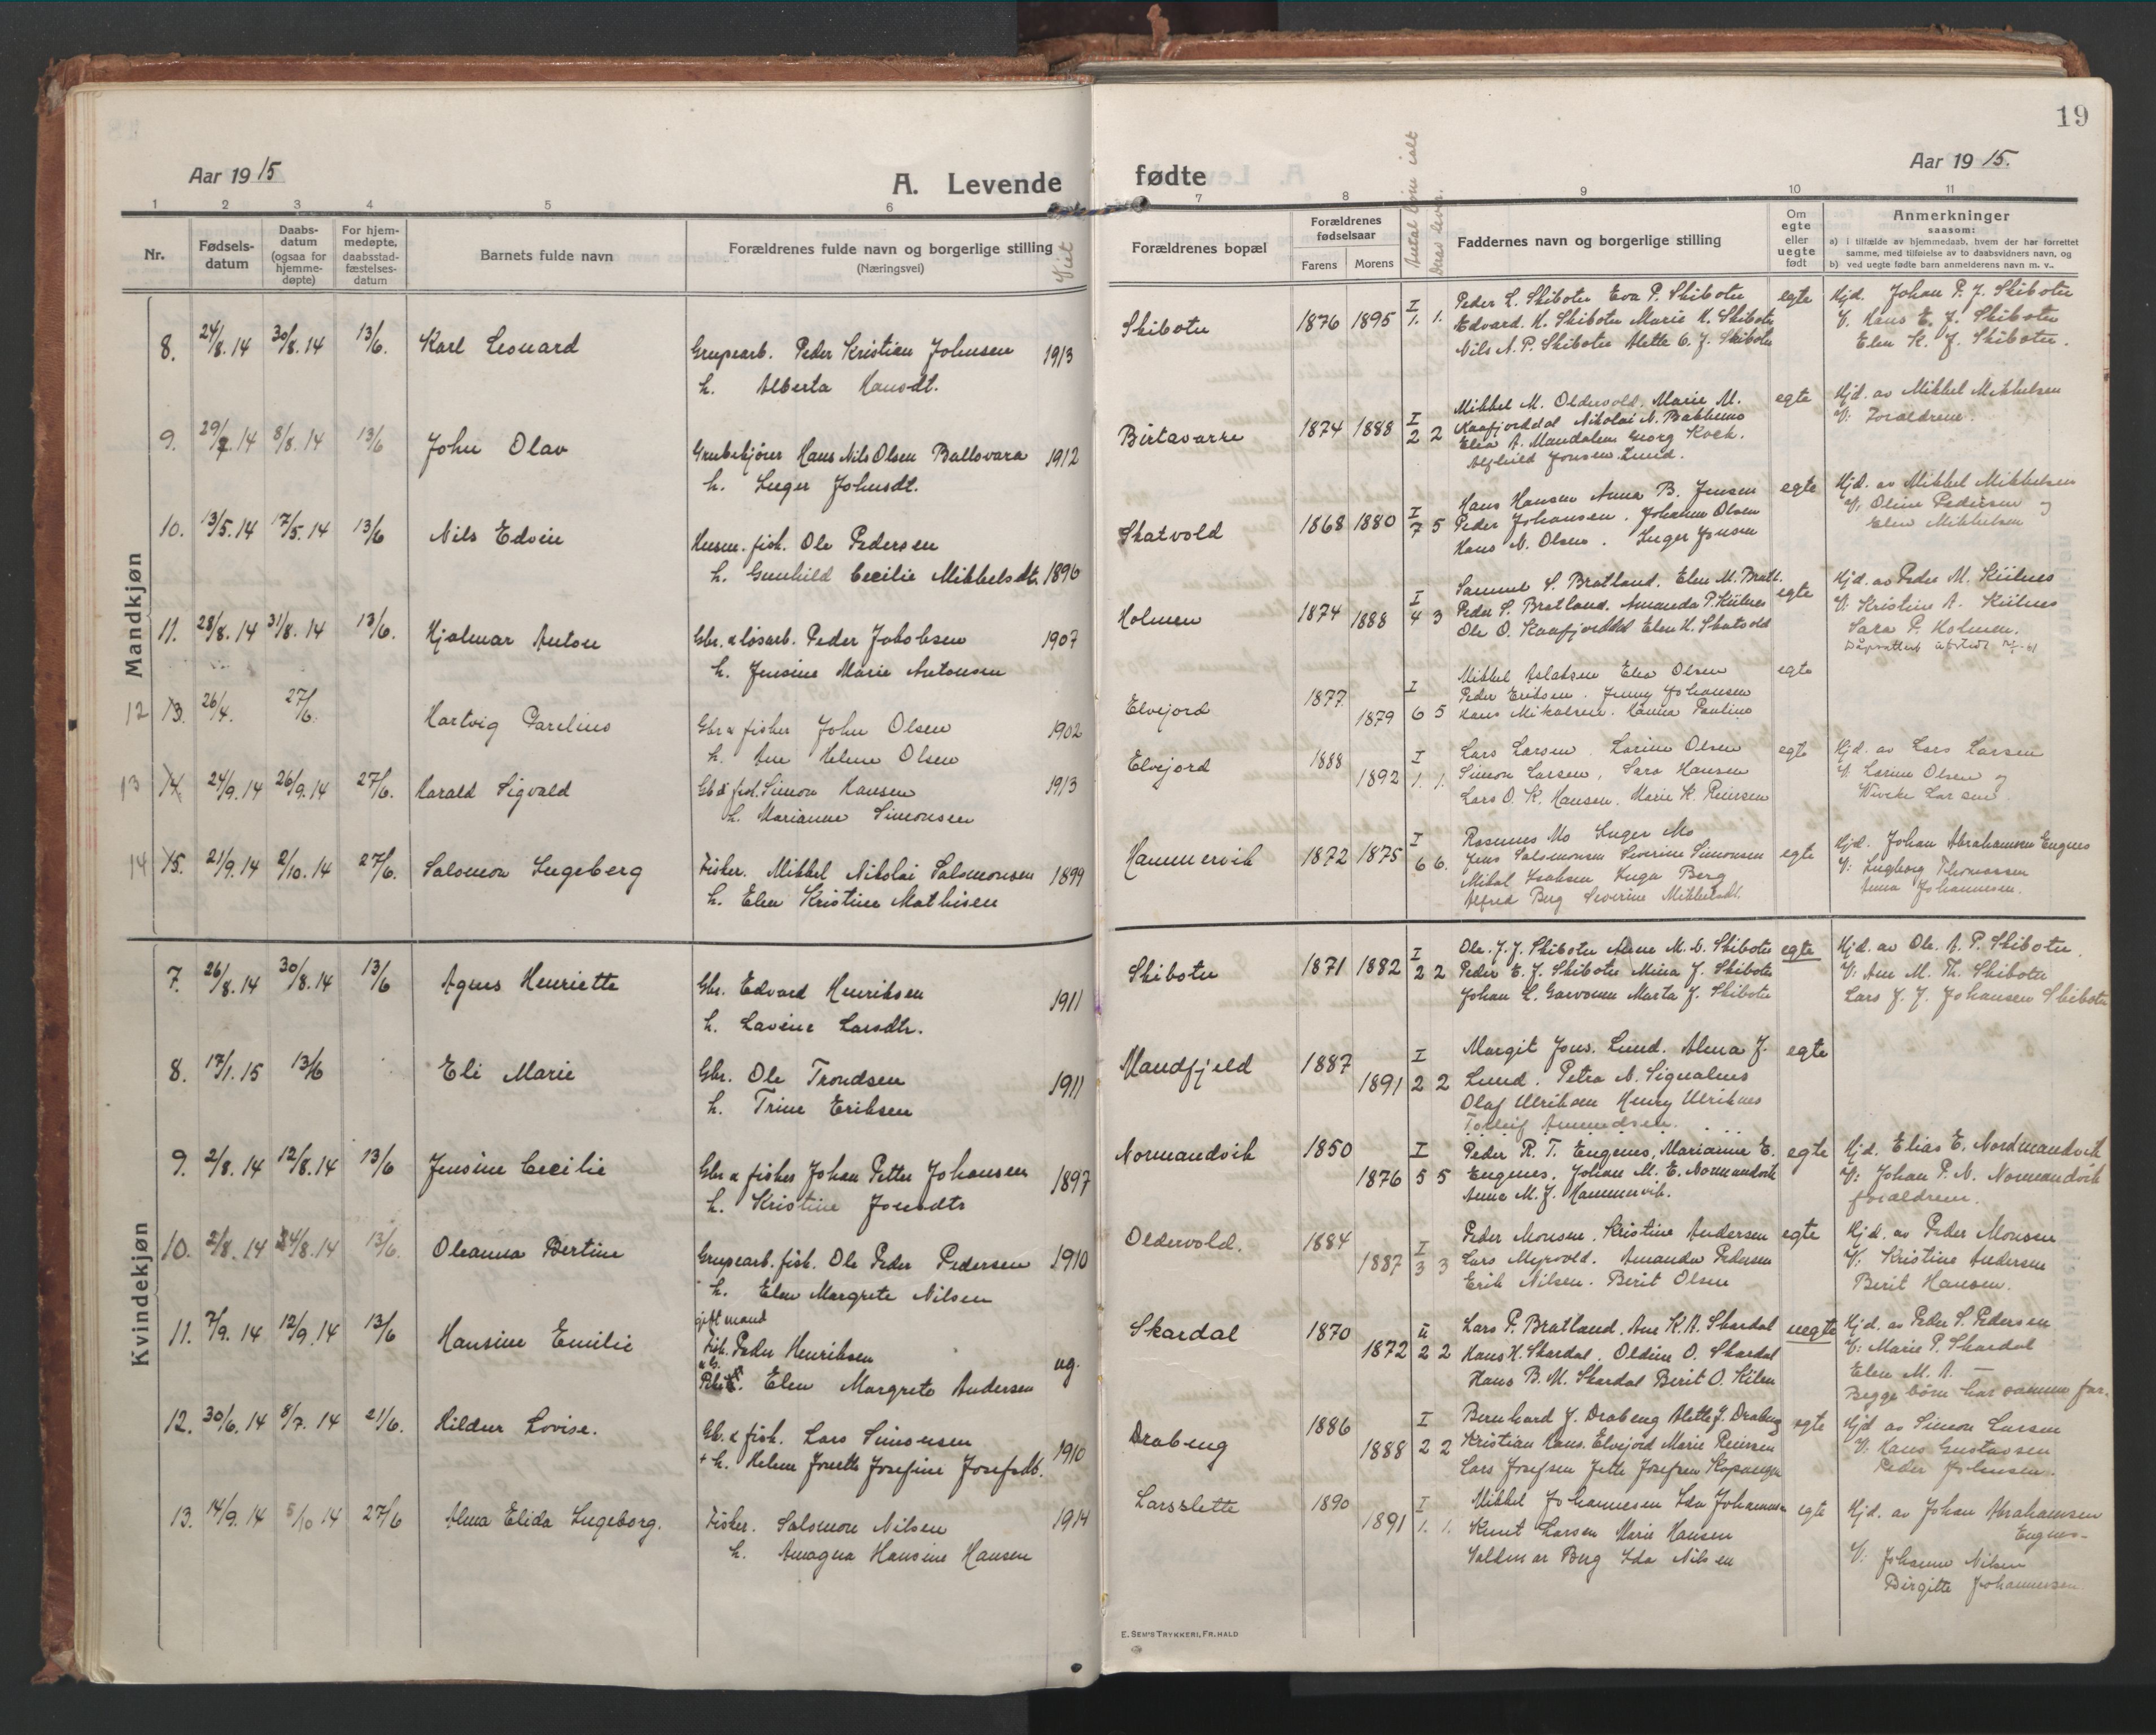 19
Aar 1915
A. Levende
fødte
Aar 1915.
1 2 3 4 5 6
7 8 9 10 11
Nr.
Fødsels-
datum
Daabs-
datum
(ogsaa for
hjemme-
døpte)
For hjem-
medøpte,
daabsstad-
fæstelses-
datum
Barnets fulde navn
Forældrenes fulde navn og borgerlige stilling
(Næringsvei)
Viet
Forældrenes bopæl
Forældrenes
fødselsaar
Farens Morens
Antal børn ialt
Deras lever.
Faddernes navn og borgerlige stilling
Om
egte
eller
uegte
født
Anmerkninger
saasom:
a) i tilfælde av hjemmedaab, hvem der har forrettet
samme, med tilføielse av to daabsvidners navn, og
b) ved uegte fødte barn anmelderens navn m. v..
Mandkjøn
8. 24/8. 14 30/8. 14 13/6. Karl Leonard
Grupearb. Peder Kristian Johnsen 1913
h. Alberta Hansdt.
Skibotn 1876 1895 I 1. 1.
Peder L. Skibotn Eva P. Skibotn
Edvard. H. Skibotn Marie H. Skibotn
Nils A. P. Skibotn Alette O. J. Skibotn
egte
Hjd. Johan P. J. Skibotn
V. Hans E. J. Skibotn
Elen K. J. Skibotn.
9. 29/7. 14 8/8. 14 13/6 John Olav
Grubekjører Hans Nils Olsen Ballovara 1912
h. Inger Johnsdt.
Birtavarre 1874 1888 I 2 2
Mikkel M. Oldervold. Marie M.
Kaafjorddal Nikolai N. Bakkemo
Elen A. Mandalen Georg Koch.
Alfhild Jonsen Lund.
egte
Hjd. av Mikkel Mikkelsen
V: Forældrene.
10. 13/5. 14 17/5. 14 13/6 Nils Edvin
Husm. fisk. Ole Pedersen
h. Gunhild Cecilie Mikkelsdtr. 1896
Skatvold 1868 1880 I 7 5
Hans Hansen Anna B. Jensen
Peder Johansen. Johanna Olsen
Hans N. Olsen. Inger Jonsen
egte
Hjd. av Mikkel Mikkelsen
V: Oline Pedersen og
Elen Mikkelsen
11. 28/8. 14 31/8. 14 13/6. Hjalmar Anton
Gbr. & løsarb. Peder Jakobsen 1907
h. Jensine Marie Antonsen
Holmen 1874 1888 I 4 3
Samuel S. Bratland. Elen M. Bratl.
Peder S. Bratland. Amanda P. Kiilnes
Ole O. Kaafjorddal Elen H. Skatvold
egte
Hjd. av Peder M. Kiilnes
V. Kristine A. Kiilnes
Sara P. Holmen.
12 13. 26/4. 27/6. Hartvig Parelius
Gbr & fisker John Olsen 1902
h. Ane Helene Olsen
Elvejord 1877 1879 I 6 5
Mikkel Aslaksen Elen Olsen
Peder Eriksen. Jenny Johansen
Hans Mikalsen. Hanna Pauline
egte
13 14. 24/9. 14 26/9. 14 27/6. Harald Sigvald
Gb & fisk. Simon Hansen 1913
h. Marianne Simonsen
Elvejord 1888 1892 I 1. 1.
Lars Larsen. Larine Olsen
Simon Larsen, Sara Hansen
Lars O. K. Hansen. Marie K. Reiersen
egte
Hjd. av Lars Larsen
V. Larine Olsen og
Viveke Larsen.
14 15. 21/9. 14 2/10. 14 27/6. Salomon Ingeberg
Fisker. Mikkel Nikolai Salomonsen 1899
h. Elen Kristine Mathisen
Hammervik 1872 1875 I 6 6.
Rasmus Mo Inger Mo
Jens Salomonsen Severine Simonsen
Mikal Isaksen Inga Berg
Alfred Berg Severine Mikkelsdt.
egte
Hjd. Johan Abrahamsen Engnes
V: Ingeborg Thomassen
Anna Johannesen.
Kvindekjøn
7. 26/8. 14 30/8. 14 13/6 Agnes Henriette
Gbr. Edvard Henriksen 1911
h. Lavine Larsdtr.
Skibotn 1871 1882 I 2 2
Ole. J. J. Skibotn Anne M. N. Skibotn
Peder E. J. Skibotn Mina J. Skibotn
Johan L. Garvonen Marta J. Skibotn
egte
Hjd. av Ole. A. P. Skibotn.
V: Ane M. Th. Skibotn
Lars J. J. Johansen Skibotn
8. 17/1. 15 13/6 Eli Marie
Gbr. Ole Trondsen 1911
h. Trine Eriksen
Mandfjeld 1887 1891 I 2 2
Margit Jons. Lund. Alma J.
Lund. Petra N. Signalnes
Olaf Ulriksen Henry Ulriknes
Torleif Amundsen.
egte
9. 2/8. 14 12/8. 14 13/6 Jensine Cecilie
Gbr & fisker Johan Petter Johansen 1897
h. Kristine Jonsdtr
Normandvik 1850 1876 I 5 5
Peder R. T. Engenes, Marianne E.
Engenes, Johan M. E. Normandvik
Anna M. J. Hammervik.
egte
Hjd. Elias E. Nordmandvik
V: Johan P. N. Normandvik
forældrene.
10. 2/8. 14 24/8. 14 13/6. Oleanna Bertine
Grupearb. fisk. Ole Peder Pedersen 1910
h. Elen Margrete Nilsen
Oldervold. 1884 1887 I 3 3
Peder Monsen. Kristine Andersen
Lars Myrvold. Amanda Pedersen
Erik Nilsen. Berit Olsen
egte
Hjd. av Peder Monsen
V: Kristine Andersen
Berit Hansen.
11. 7/9. 14 12/9. 14 13/6 Hansine Emilie
gift mand
Fisk. Peder Henriksen ug.
Elen Margrete Andersen
Skardal 1870 1872 II 2 2
Lars P. Bratland. Ane K. A. Skardal
Hans H. Skardal. Oldine O. Skardal
Hans B. M. Skardal Berit O. Kilen
uegte
Hjd. av Peder S. Pedersen
V: Marie P. Skardal
Elen M. A. —
Begge børn har samme far.
12. 30/6. 14 8/7. 14 21/6. Hildur Lovise.
Gb. & fisk. Lars Simonsen 1910
+ h. Helene Josette Josefine Josefsdt.
Drabeng 1886 1888 I 2 2
Bernhard J. Drabeng Alette J. Drabeng
Kristian Hans. Elvejord Marie Reiersen
Lars Josefsen Jette Josefsen Kopangen
egte
Hjd av Simon Larsen
V: Hans Gustavsen
Peder Johnsen.
13. 14/9. 14 5/10 14 27/6 Alma Elida Ingeborg.
Fisker. Salomon Nilsen 1914
h. Amagna Hansine Hansen
Larsslette 1890 1891 I 1. 1.
Mikkel Johannesen Ida Johannesen
Knut Larsen Marie Hansen
Valdmar Berg Ida Nilsen
egte
Hjd. av Johan Abrahamsen
Engnes-
V: Johanne Nilsen
Birgitte Johannesen.
E. SEM'S TRYKKERI, FR.HALD